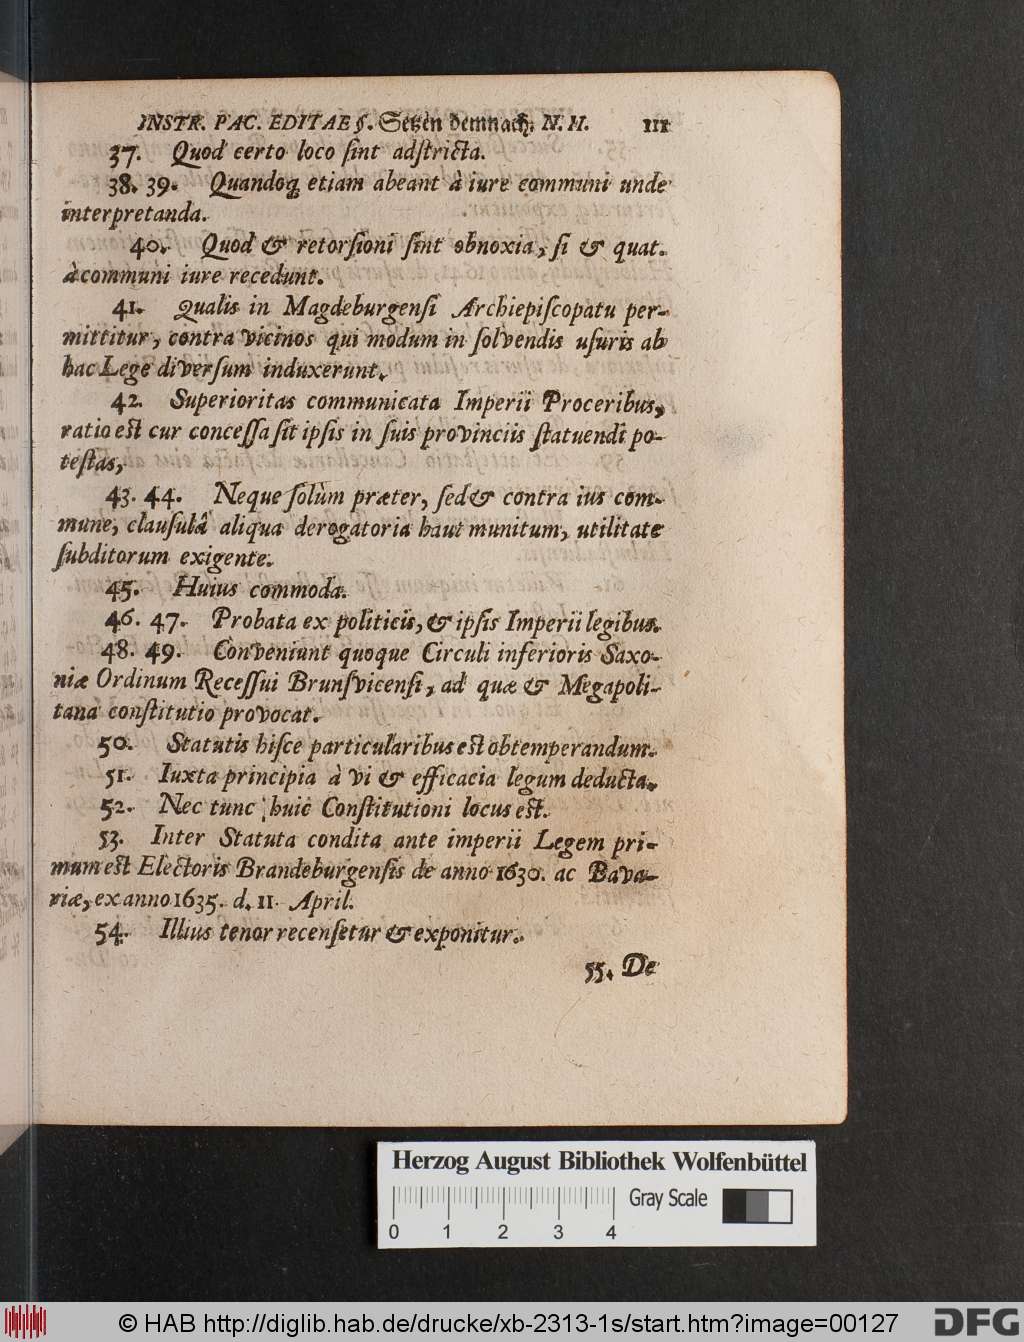 INSTR. PAC. EDITAE §. Setzen demnach. N. N. 111
37. Quod certo loco ſint adſtricta.
38. 39. Quandoq; etiam abeant à iure communi unde
interpretanda.
40. Quod & retorſioni ſint obnoxia, ſi & quat.
à communi iure recedunt.
41. Qualis in Magdeburgenſi Archiepiſcopatu per-
mittitur, contra vicinos qui modum in ſolvendis uſuris ab
hac Lege diverſum induxerunt.
42. Superioritas communicata Imperii Proceribus,
ratio est cur conceſſa ſit ipſis in ſuis provinciis ſtatuendi po-
teſtas,
43. 44. Neque ſolùm præter, ſed & contra ius com-
mune, clauſulâ aliqua derogatoria haut munitum, utilitate
ſubditorum exigente.
45. Huius commoda.
46. 47. Probata ex politicis, & ipſis Imperii legibus.
48. 49. Conveniunt quoque Circuli inferioris Saxo-
niæ Ordinum Receſſui Brunſvicenſi, ad quæ & Megapoli-
tana conſtitutio provocat.
50. Statutis hiſce particularibus est obtemperandum.
51. Iuxta principia à vi & efficacia legum deducta.
52. Nec tunc huic Conſtitutioni locus est.
53. Inter Statuta condita ante imperii Legem pri-
mum est Electoris Brandeburgenſis de anno 1630. ac Bava-
riæ, ex anno 1635. d. 11. April.
54. Illius tenor recenſetur & exponitur.
55. De
Herzog August Bibliothek Wolfenbüttel
Gray Scale
0 1 2 3 4
© HAB http://diglib.hab.de/drucke/xb-2313-1s/start.htm?image=00127
DFG